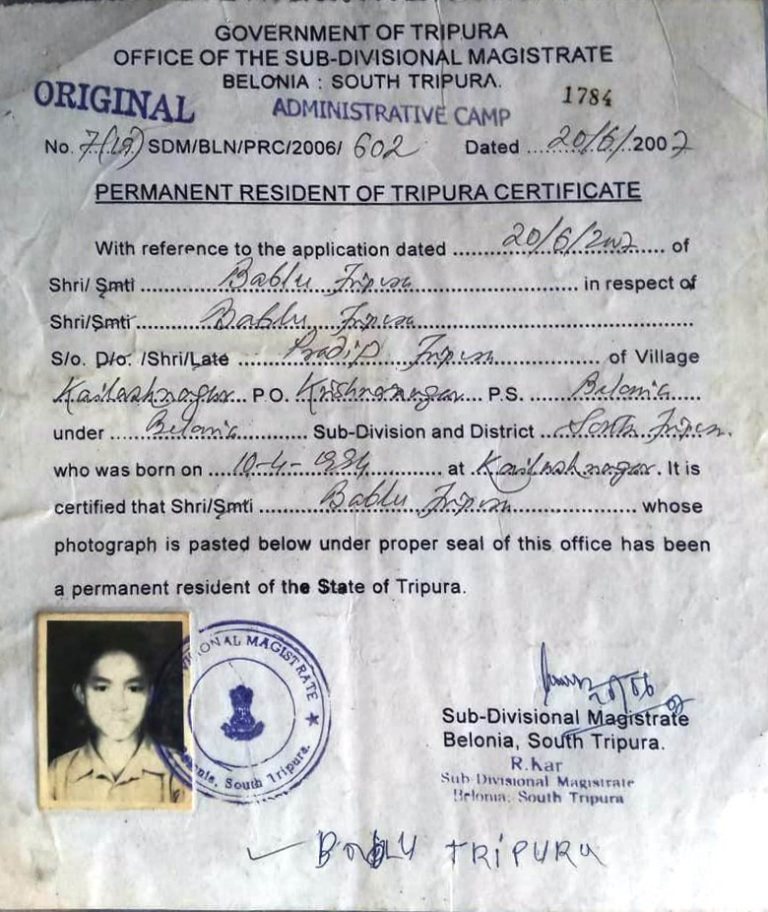 GOVERNMENT OF TRIPURA
OFFICE OF THE SUB-DIVISIONAL MAGISTRATE
BELONIA : SOUTH TRIPURA.
ORIGINAL
ADMINISTRATIVE CAMP
1784
No. 7(19) SDM/BLN/PRC/2006/ 602 Dated ....20/6/..2007
PERMANENT RESIDENT OF TRIPURA CERTIFICATE
With reference to the application dated ........20/6/2007..... of
Shri/ Smti ............Bablu Tripura........................... in respect of
Shri/Smti...........Bablu Tripura..........................................
S/o. D/o. /Shri/Late .......Pradip Tripura.................. of Village
Kailashnagar... P.O. Krishnanagar... P.S. .......Belonia.....
under ......Belonia............. Sub-Division and District ..South Tripura.
who was born on ....10-4-1994............ at Kailashnagar. It is
certified that Shri/Smti ...........Bablu Tripura...................... whose
photograph is pasted below under proper seal of this office has been
a permanent resident of the State of Tripura.
DIVISIONAL MAGISTRATE ★
Belonia, South Tripura.
20/06
Sub-Divisional Magistrate
Belonia, South Tripura.
R.Kar
Sub-Divisional Magistrate
Belonia, South Tripura
BABLU TRIPURA